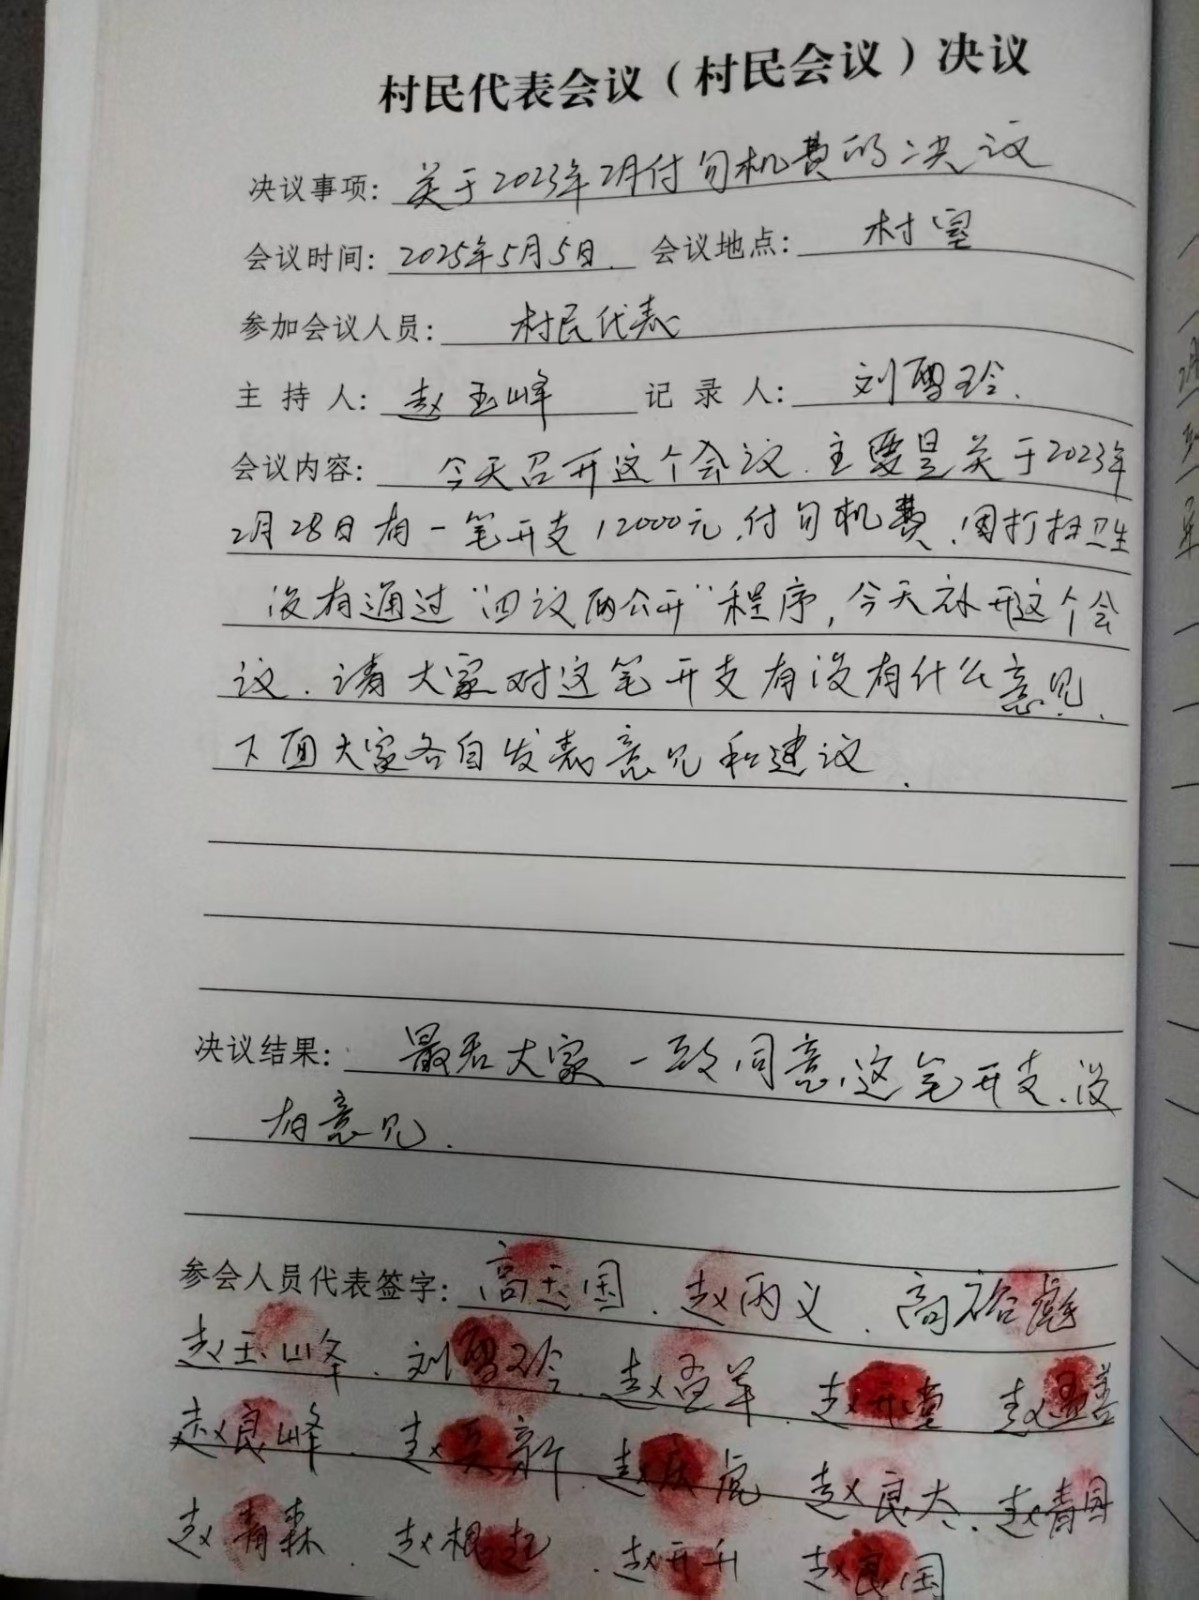 村民代表会议（村民会议）决议
决议事项：关于2023年2月付勾机费的决议
会议时间：2025年5月5日. 会议地点：村室
参加会议人员：村民代表
主持人：赵玉峰 记录人：刘雪玲.
会议内容：今天召开这个会议.主要是关于2023年
2月28日有一笔开支12000元.付勾机费.因打扫卫生
没有通过“四议两公开”程序，今天补开这个会
议.请大家对这笔开支有没有什么意见.
下面大家各自发表意见和建议.
决议结果：最后大家一致同意这笔开支.没
有意见.
参会人员代表签字：高玉国.赵丙义.高裕彪
赵玉峰.刘雪玲.赵 赵开 赵
赵良峰.赵 新 赵庆虎 赵良大.赵青国
赵青森.赵根起.赵开升 赵良国